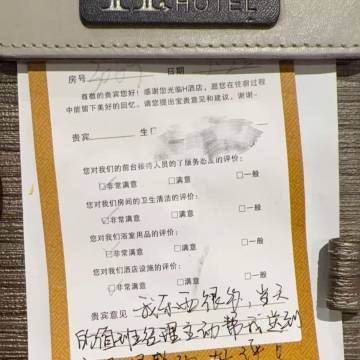 HOTEL
房号 日期
尊敬的贵宾您好！感谢您光临H酒店，愿您在住宿过程
中能留下美好的回忆。请您提出宝贵意见和建议，谢谢~
贵宾 生日
您对我们的前台接待人员的了服务态度的评价：
☑非常满意 □满意 □一般
您对我们房间的卫生清洁的评价：
☑非常满意 □满意 □一般
您对我们浴室用品的评价：
☑非常满意 □满意 □一般
您对我们酒店设施的评价：
☑非常满意 □满意 □一般
贵宾意见 很 当天
的值班经理主动帮我送到